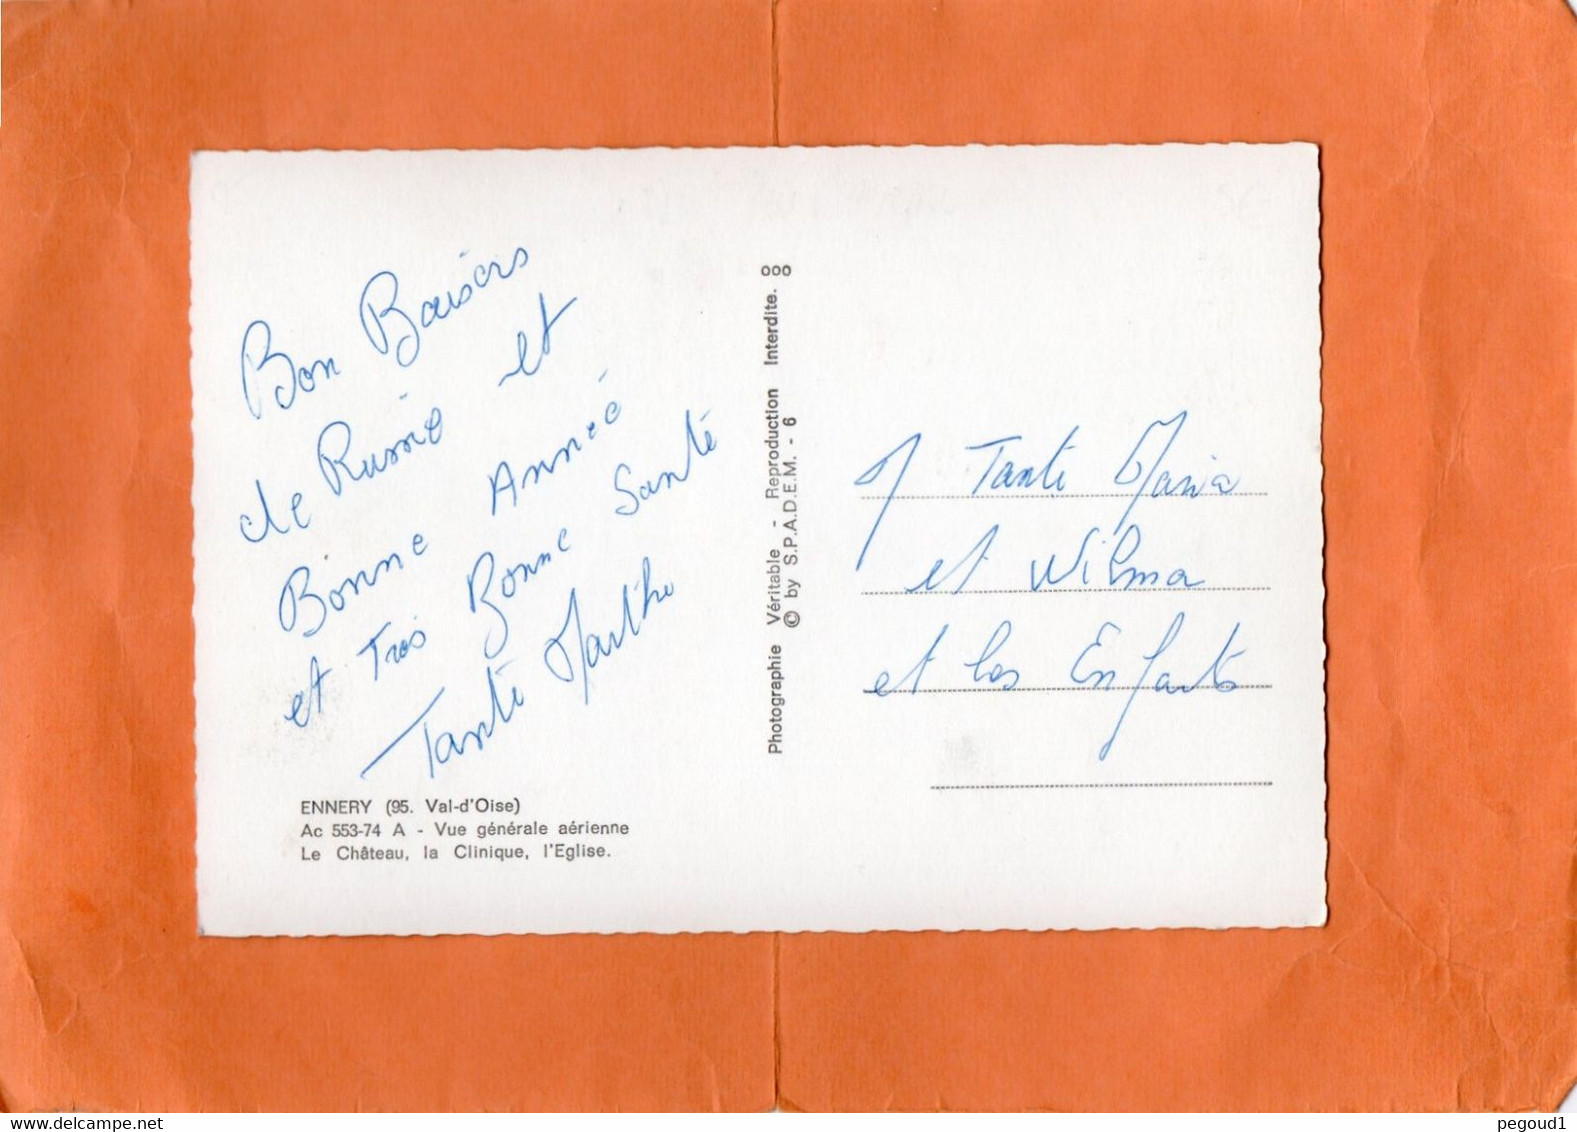 Bon Baisers
de Russie et
Bonne Année
et Trés Bonne Santé
Tante Marthe
ENNERY (95. Val-d'Oise)
Ac 553-74 A - Vue générale aérienne
Le Château, la Clinique, l'Eglise.
Photographie Véritable - Reproduction Interdite.
© by S.P.A.D.E.M. - 6
Tante Maria
et Wilma
et les Enfants
www.delcampe.net
pegoud1